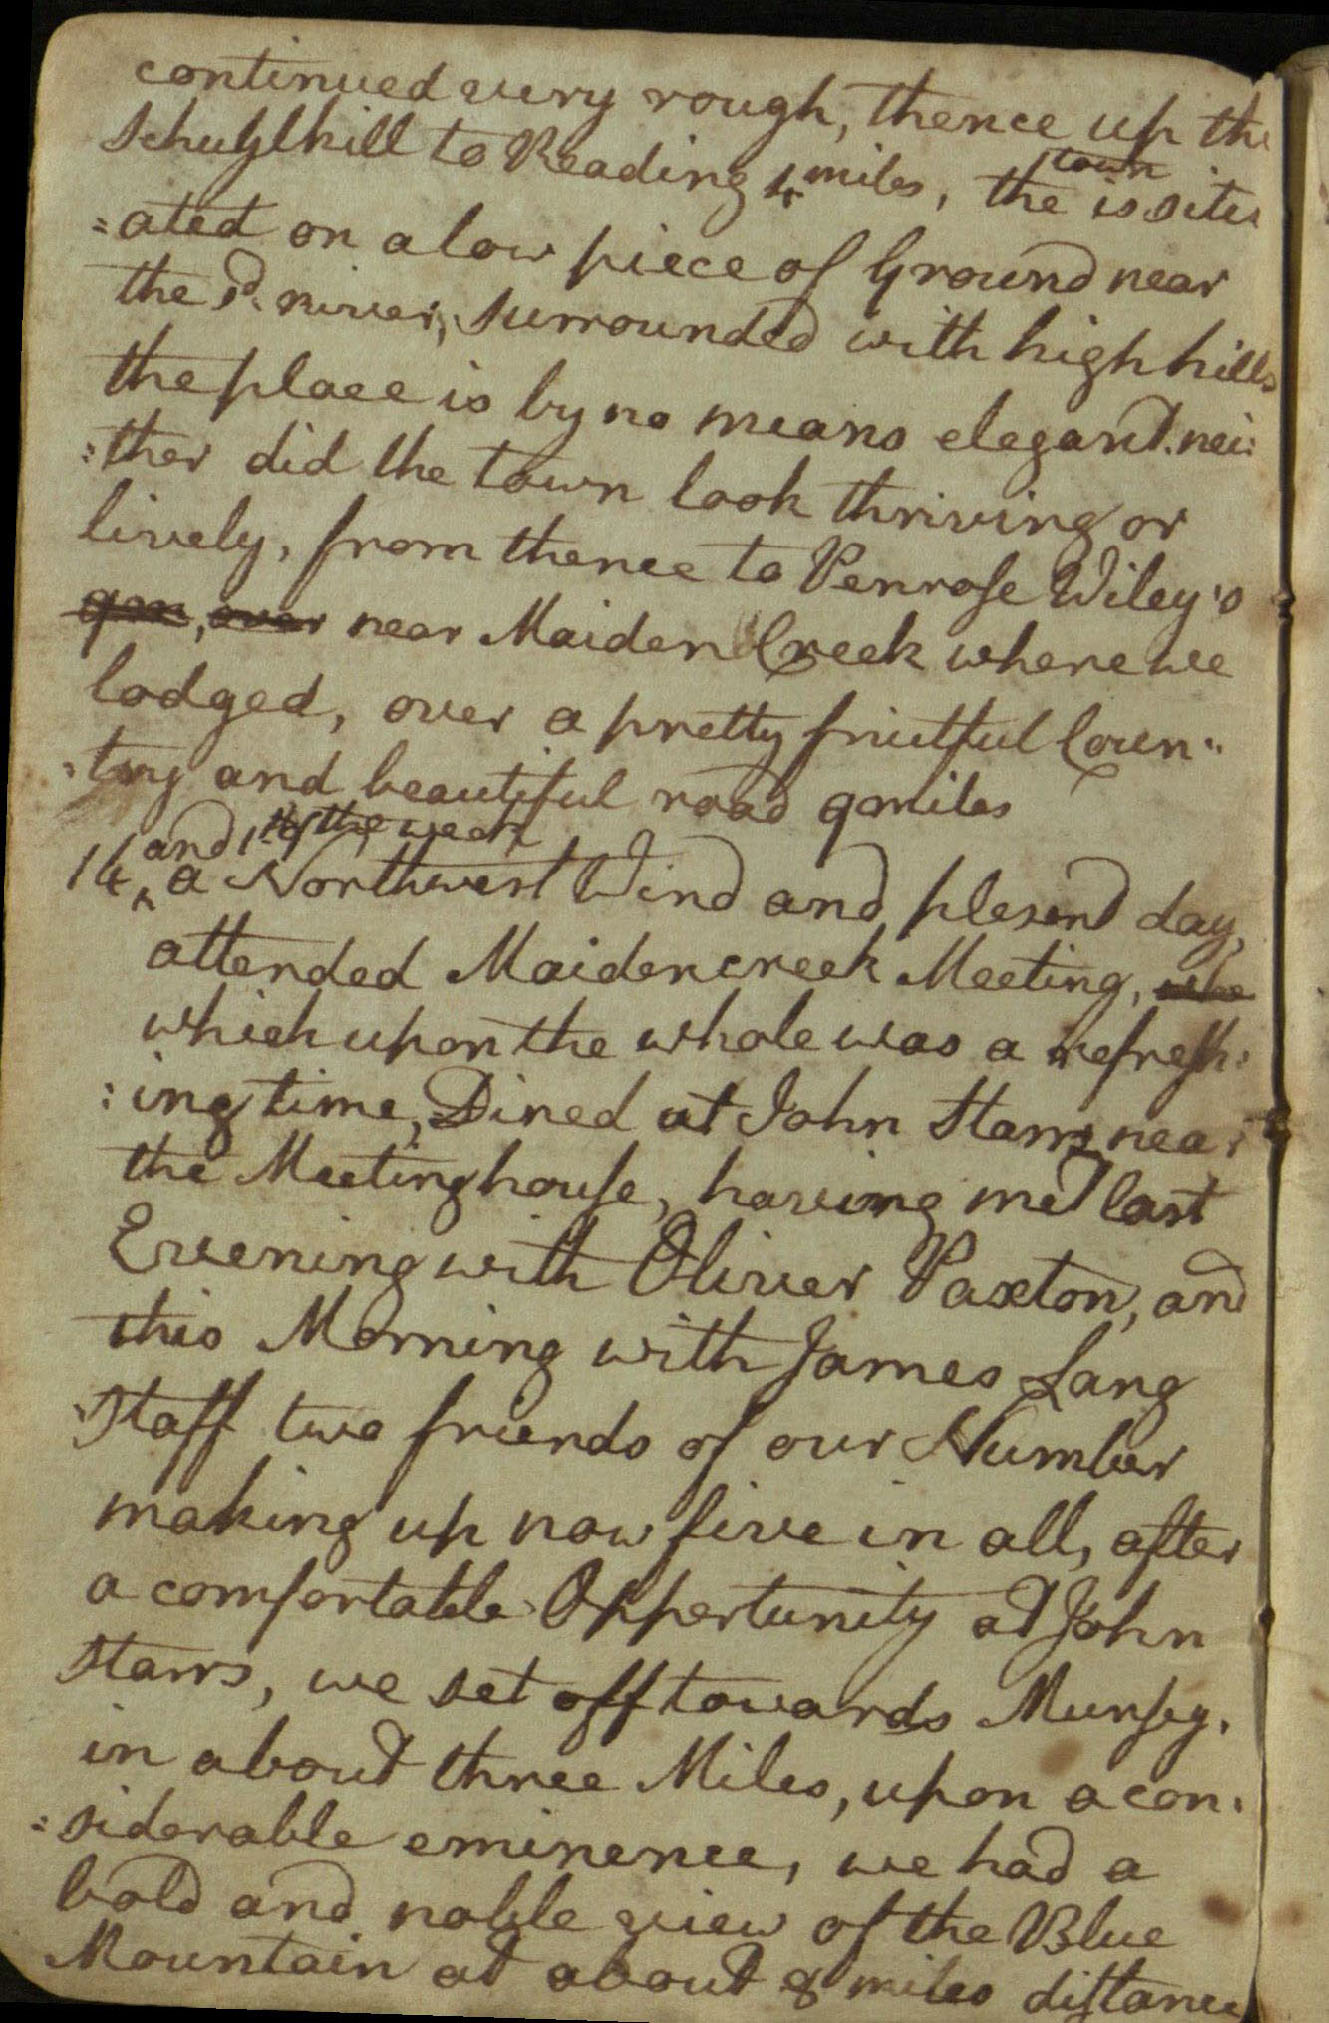 continued very rough, thence up the
Schuylkill to Reading 4 miles, the town is situ
=ated on a low piece of Ground near
the sd. river, surrounded with high hills
the place is by no means elegant. nei:
:ther did the town look thriving or
lively, from thence to Penrose Wiley's
near Maiden Creek where we
lodged, over a pretty fruitful Coun"
:try and beautiful road 9 miles
and 1st of the week
14, a Northwest Wind and plesent day,
attended Maidencreek Meeting, who
which upon the whole was a refresh:
:ing time, Dined at John Starrs near
the Meetinghouse, having met last
Evening with Oliver Paxton, and
this Morning with James Lang
Staff two friends of our Number
making up now five in all, after
a comfortable Oppertunity at John
Starrs, we set off towards Munsey,
in about three Miles, upon a con:
=siderable eminence, we had a
bold and noble view of the Blue
Mountain at about 8 miles distance